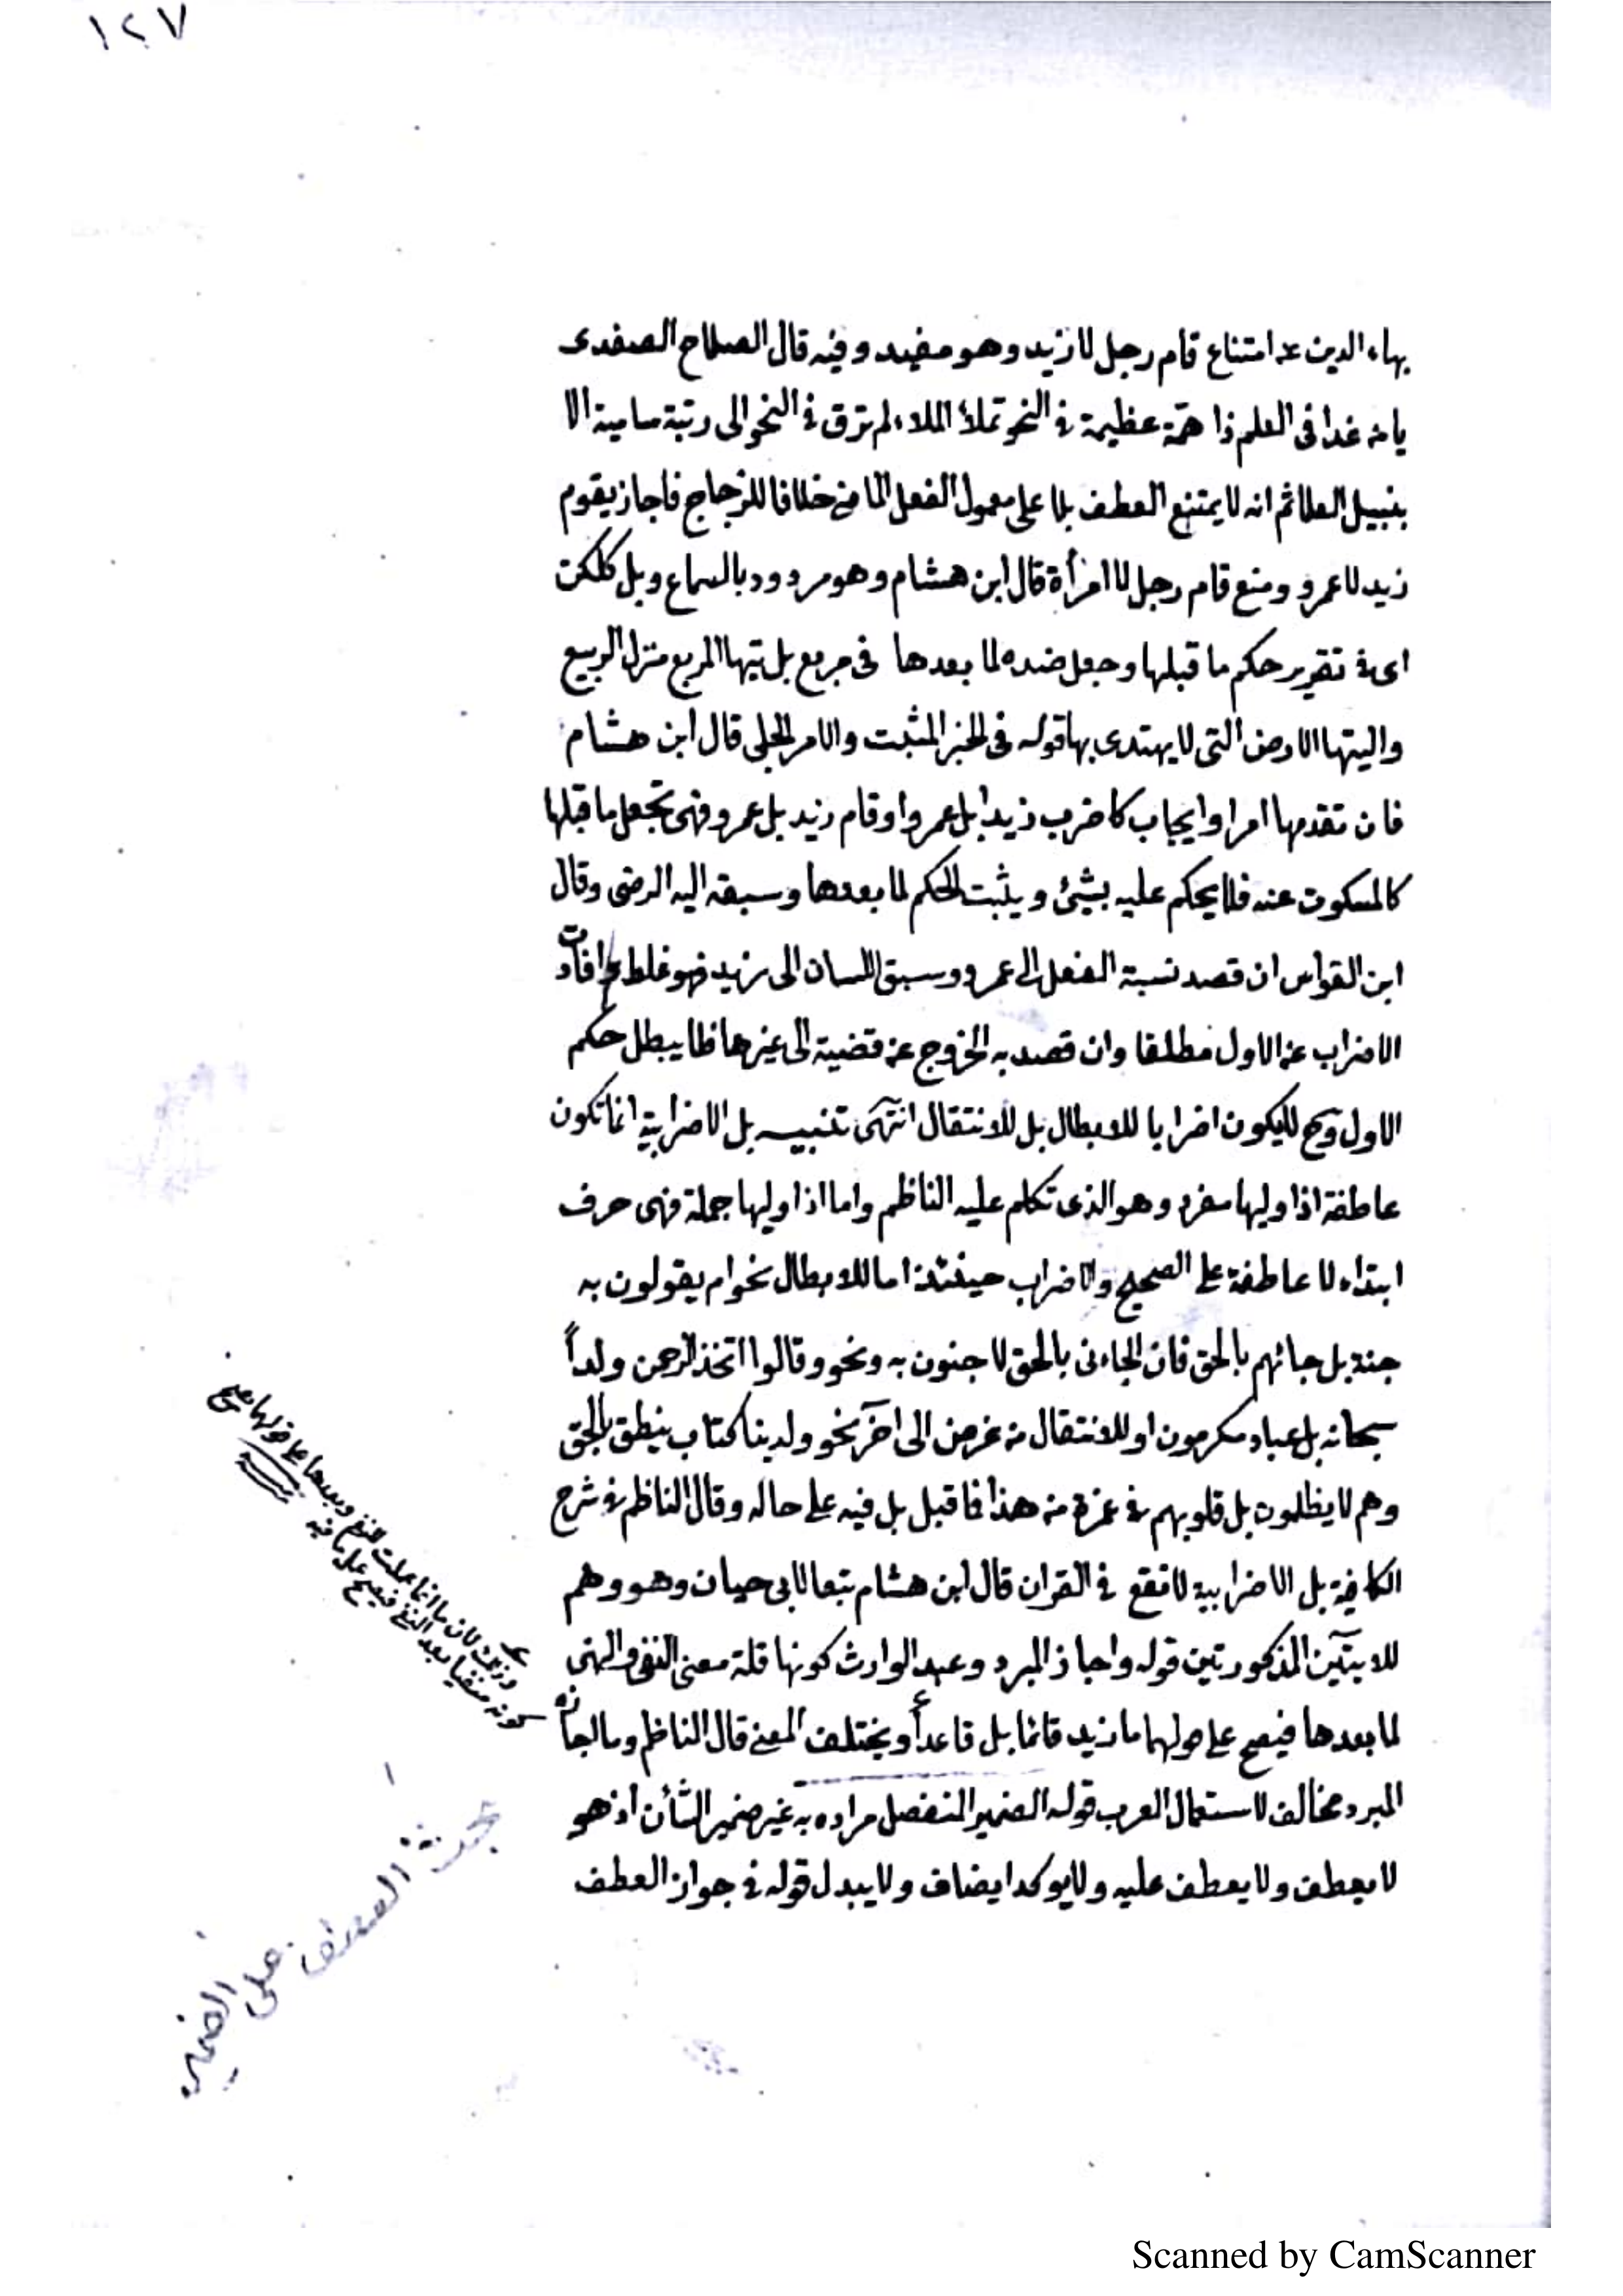 ١٢٧
بهاء الدين عن امتناع قام رجل لا زيد وهو مفيد وفيه قال الصلاح الصفدى
يا من غدا فى العلم ذا همة عظيمة فى النحو تملأ الملاء لم ترق فى النحو الى رتبة سامية الا
بنبيل العلا ثم انه لا يمتنع العطف بلا على معمول الفعل الماضى خلافا للزجاج فاجاز يقوم
زيد لا عمرو ومنع قام رجل لا امرأة قال ابن هشام وهو مردود بالسماع وبل كلكن
اى فى تقرير حكم ما قبلها وجعل ضده لما بعدها فى مربع بل تيها المربع منزل الربيع
واليتها الارض التى لا يهتدى بها قوله فى الخبر المثبت والامر الجلى قال ابن هشام
فان تقدمها امر او ايجاب كاضرب زيدا بل عمروا وقام زيد بل عمرو فهى تجعل ما قبلها
كالمسكوت عنه فلا يحكم عليه بشيئ ويثبت الحكم لما بعدها وسبقه اليه الرضى وقال
ابن القواس ان قصد نسبة الفعل الى عمرو وسبق اللسان الى زيد فهو غلط افادت
الاضراب عن الاول مطلقا وان قصد به الخروج عن قضية الى غيرها فلا يبطل حكم
الاول وح لا يكون اضرابا للابطال بل للانتقال انتهى تنبيه بل الاضرابية انما تكون
عاطفة اذا وليها مفرد وهو الذى تكلم عليه الناظم واما اذا وليها جملة فهى حرف
ابتداء لا عاطفة على الصحيح والاضراب حينئذ اما للابطال نحو ام يقولون به
جنة بل جائهم بالحق فان الجاءى بالحق لا جنون به ونحو وقالوا اتخذ الرحمن ولداً
سبحانه بل عباد مكرمون او للانتقال من غرض الى اخر نحو ولدينا كتاب ينطق بالحق
وهم لا يظلمون بل قلوبهم فى غمرة من هذا فما قبل بل فيه على حاله وقال الناظم فى شرح
الكافية بل الاضرابية لا تقع فى القران قال ابن هشام تبعا لابى حيان وهو وهم
للايتين المذكورتين قوله واجاز المبرد وعبد الوارث كونها ناقلة معنى النفى والنهى
لما بعدها فيصح على قولهما ما زيد قائما بل قاعداً ويختلف المعنى قال الناظم وما اجازه
المبرد مخالف لاستعمال العرب قوله الضمير المنفصل مراده به غير ضمير الشأن اذ هو
لا يعطف ولا يعطف عليه ولا يوكد ايضاف ولا يبدل قوله فى جواز العطف
وذلك لان ما انما عملت للنفى وبعدها على قولهما يصح
كونه منفيا بعد النفى فيصح عمل ما فيه
بحث العطف على الضمير
Scanned by CamScanner